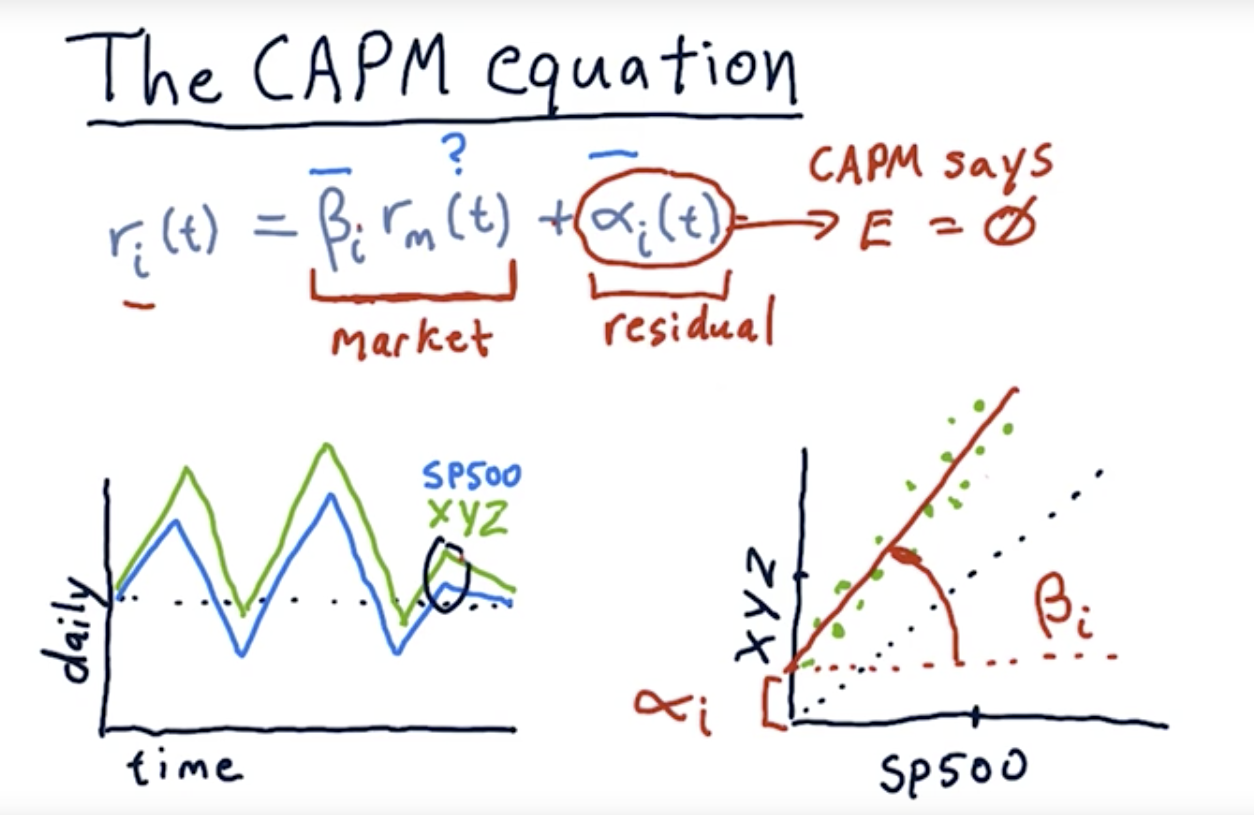 The CAPM equation
?
rᵢ(t) = βᵢ rₘ(t) + αᵢ(t) → E = ∅
CAPM says
market
residual
SP500
XYZ
daily
time
XYZ
βᵢ
αᵢ
SP500